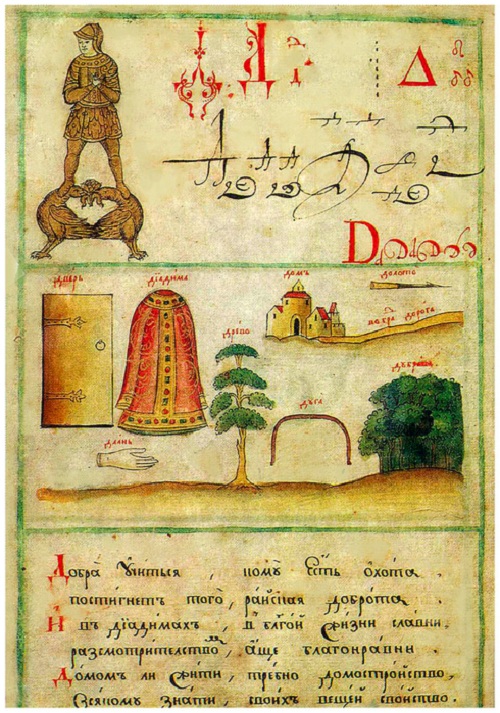 Д Д Д Δ
D
дверь діадима домъ долото
дорога
древо
дꙋга дꙋбрава
длань
Добра учитися, комꙋ есть охота.
постигнетъ того, райская доброта.
И въ діадимахъ, в бл҃гой жизни славни,
разсмотрителство, аще благонравни.
Домомъ ли жити, требно домостройство,
Всякомꙋ знати, своихъ вещей свойство.